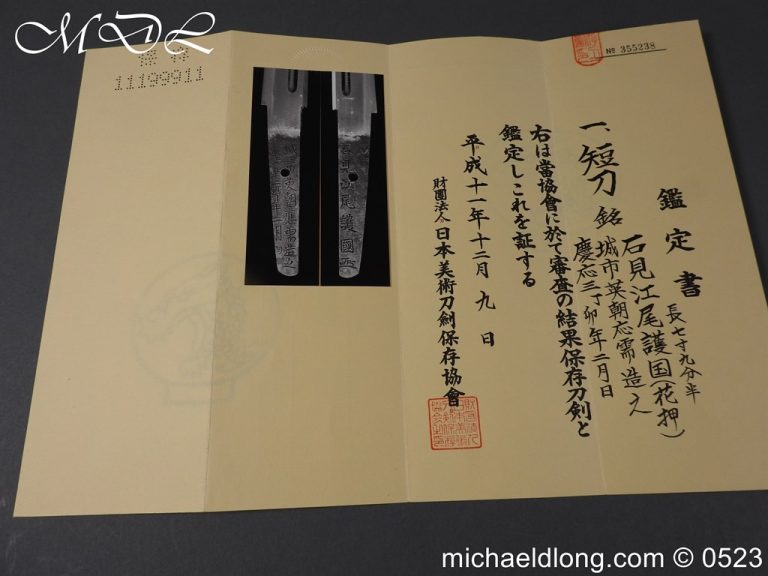 MDL
11199911
№ 355238
鑑定書
一、短刀 銘 石見江尾護国(花押)
長七寸九分半
城市英朝応需造之
慶応三丁卯年二月日
右は當協會に於て審査の結果保存刀剣と
鑑定しこれを証する
平成十一年十二月九日
財團法人日本美術刀剣保存協會
michaeldlong.com © 0523